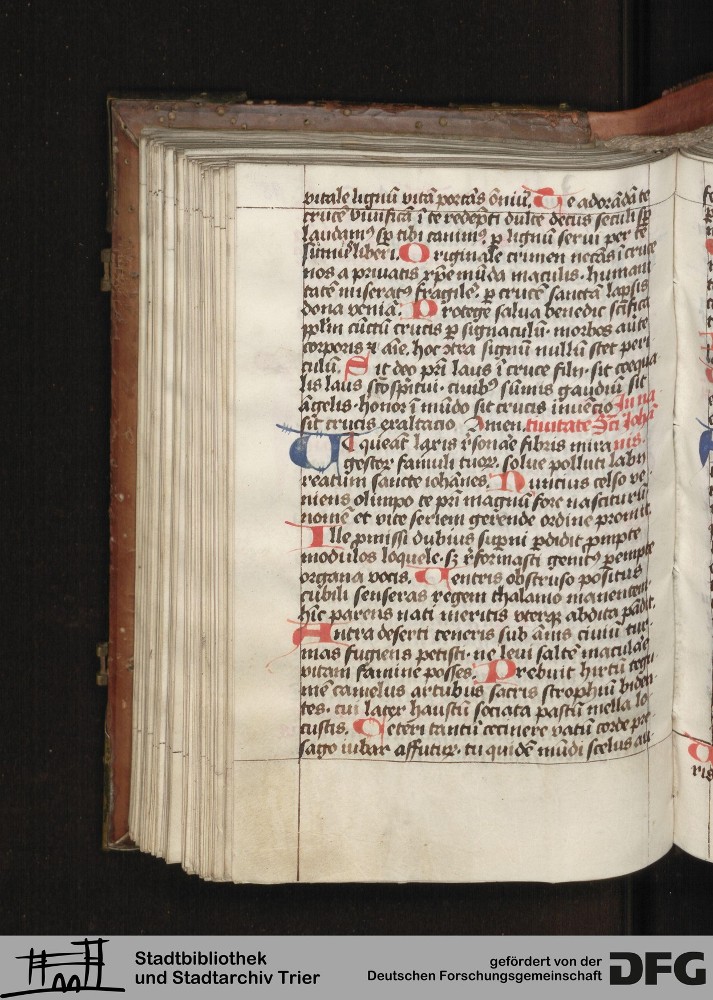 vitale lignū vitā portās ōniū. Te adorādā te
crucē vivificā ī te redēpti dulce decus seculi sp̄
laudamꝰ sp̄ tibi canimꝰ. ꝑ lignū servi per te
sumꝰ liberi. Originale crimen necās ī cruce
nos a privatis xp̄e mūda maculis. humani
tatē miseratꝰ fragilē. ꝑ crucē sanctā lapsis
dona veniā. Protege salva benedic sc̄ifica
ppl̄m cūctū crucis ꝑ signaculū. morbos averte
corporis ⁊ aīe. hoc ꝯtra signum nullū stet peri
culū. Sit deo pr̄i laus ī cruce filii. sit coequa
lis laus sc̄o spiritui. civibꝰ sūmis gaudiū sit
āgelis. honor ī mūdo sit crucis īnuēcio In na
sit crucis exaltacio Amen. tiuitate Sc̄i Johā
Ut queāt laxis r̄sonare fibris mira nis.
gestoꝝ famuli tuoꝝ. solve polluti labii
reatum sancte iohānes. Nuncius celso ve
niens olimpo te pr̄i magnū fore nasciturū
nomē et vite seriem gerende ordine promit.
Ille ꝓmissi dubius suꝑni ꝑdidit ꝓmpte
modulos loquele. sꝫ r̄formasti genitꝰ ꝑempte
organa vocis. Ventris obstruso positus
cubili senseras regem thalamo manentem.
hīc parens nati meritis uterqꝫ abdita pādit.
Antra deserti teneris sub ānis civiū tur
mas fugiens petisti. ne levi saltē maculare
vitam famine posses. Prebuit hirtū tegi
mē camelus artubus sacris strophiū biden
tes. cui latex haustū sociata pastū mella lo
custis. Ceteri tantū cecinere vatū corde pre
sago iubar affuturū. tu quidē mūdi scelus au
Stadtbibliothek
und Stadtarchiv Trier
gefördert von der
Deutschen Forschungsgemeinschaft
DFG